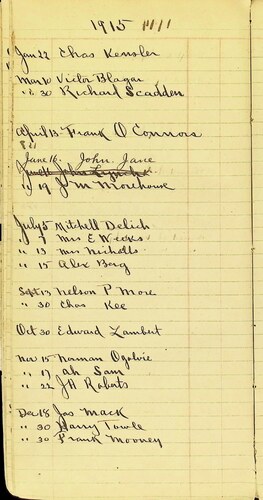 1915
Jan 22 Chas Kensler
Mar 10 Victor Blagar
" " 30 Richard Scadden
April 13 Frank O Connors
June 16. John. Jane
" 19 J M Morehouse
July 5 Mitchell Delich
" 7 Mrs E Weeks
" 13 Mrs Nicholls
" 15 Alex Berg
Sept 13 Nelson P More
" 30 Chas Kee
Oct 30 Edward Lambert
Nov 15 Norman Ogolvie
" 17 Ah Sam
" 22 J H Roberts
Dec 18 Jas Mack
" 30 Harry Towle
" 30 Frank Mooney